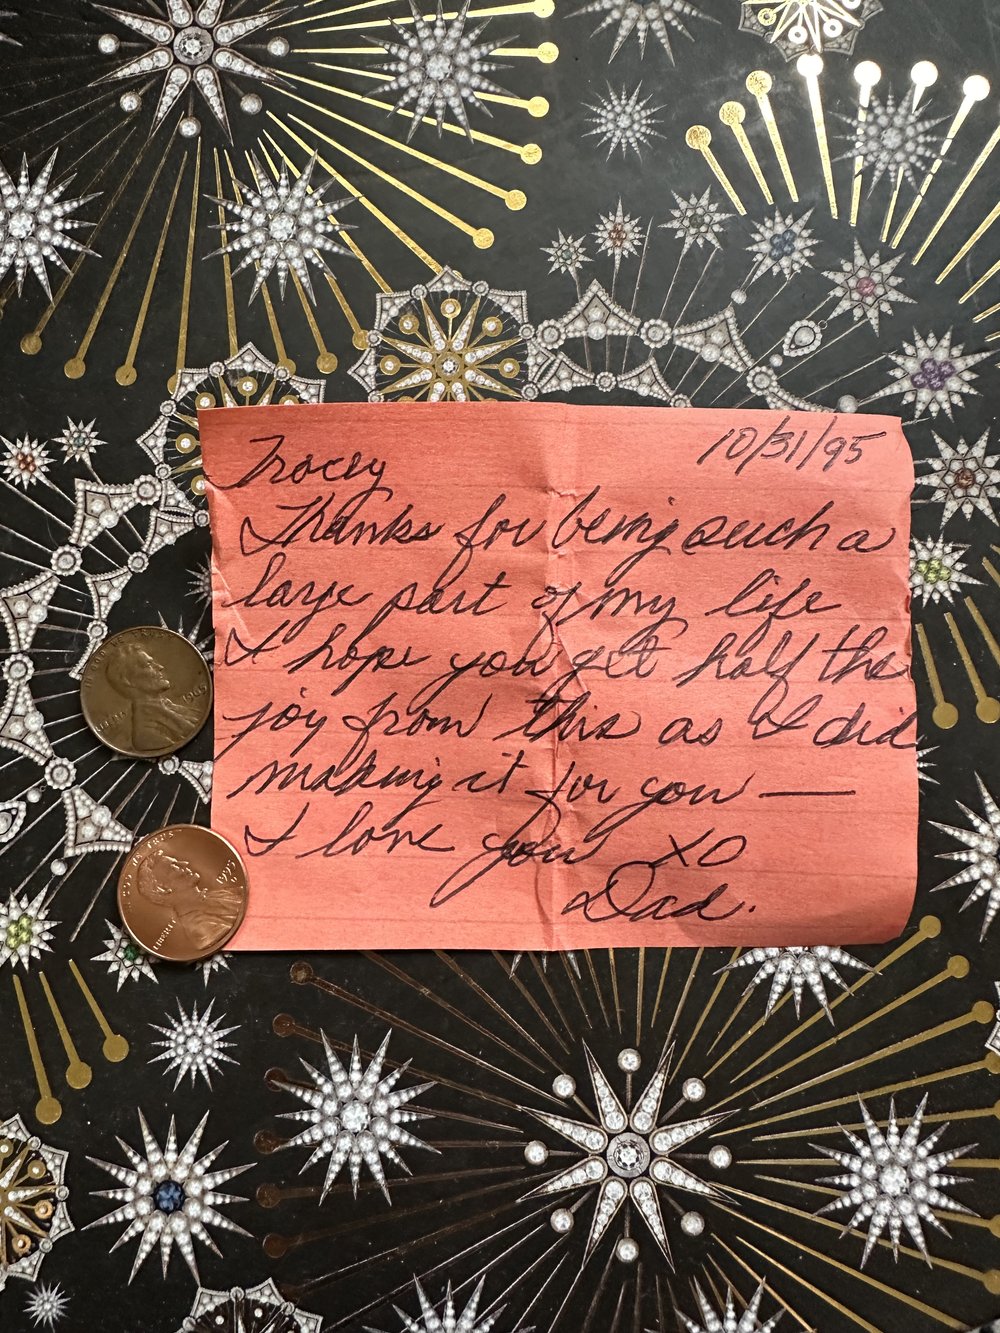 10/31/95
Tracey
Thanks for being such a
large part of my life
I hope you get half the
joy from this as I did
making it for you —
I love you XO
Dad.
IN GOD WE TRUST
LIBERTY
1965
IN GOD WE TRUST
LIBERTY
1995